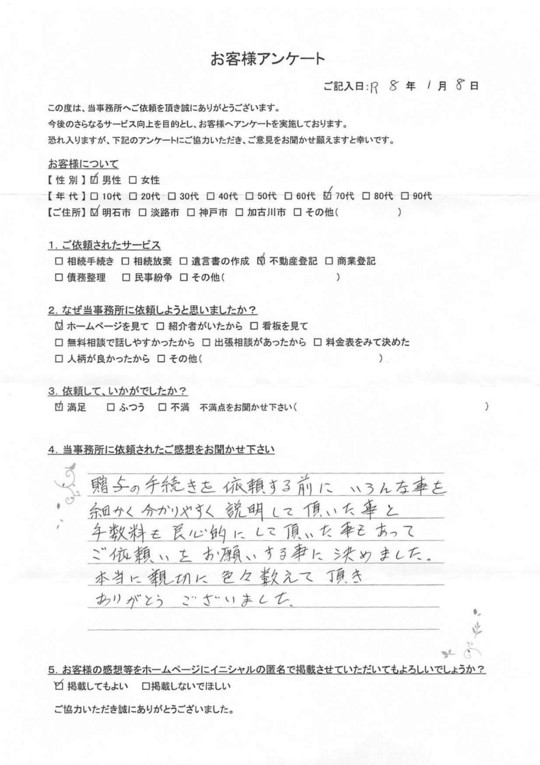 お客様アンケート
ご記入日:R 8 年 1 月 8 日
この度は、当事務所へご依頼を頂き誠にありがとうございます。
今後のさらなるサービス向上を目的とし、お客様へアンケートを実施しております。
恐れ入りますが、下記のアンケートにご協力いただき、ご意見をお聞かせ願えますと幸いです。
お客様について
【 性 別 】☑ 男性 □ 女性
【 年 代 】□ 10代 □ 20代 □ 30代 □ 40代 □ 50代 □ 60代 ☑ 70代 □ 80代 □ 90代
【ご住所】☑ 明石市 □ 淡路市 □ 神戸市 □ 加古川市 □ その他( )
1. ご依頼されたサービス
□ 相続手続き □ 相続放棄 □ 遺言書の作成 ☑ 不動産登記 □ 商業登記
□ 債務整理 □ 民事紛争 □ その他( )
2. なぜ当事務所に依頼しようと思いましたか?
☑ ホームページを見て □ 紹介者がいたから □ 看板を見て
□ 無料相談で話しやすかったから □ 出張相談があったから □ 料金表をみて決めた
□ 人柄が良かったから □ その他( )
3. 依頼して、いかがでしたか?
☑ 満足 □ ふつう □ 不満 不満点をお聞かせ下さい( )
4. 当事務所に依頼されたご感想をお聞かせ下さい
贈与の手続きを依頼する前に いろんな事を
細かく分かりやすく説明して頂いた事と
手数料も良心的にして頂いた事もあって
ご依頼いをお願いする事に決めました。
本当に親切に色々教えて頂き
ありがとうございました。
5. お客様の感想等をホームページにイニシャルの匿名で掲載させていただいてもよろしいでしょうか?
☑ 掲載してもよい □掲載しないでほしい
ご協力いただき誠にありがとうございました。